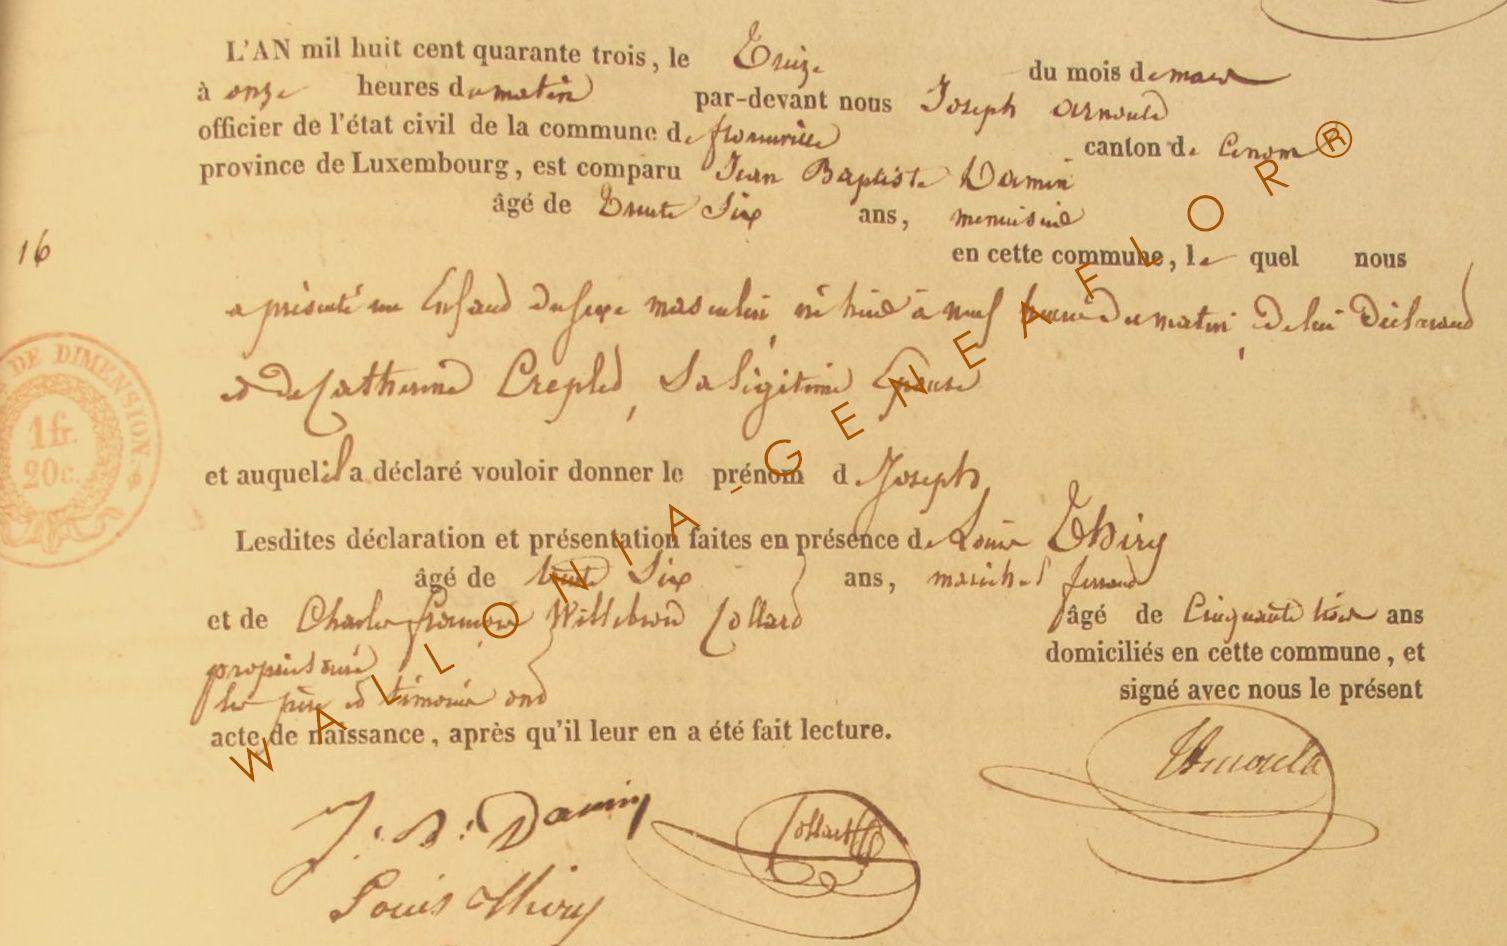 L'AN mil huit cent quarante trois, le Treize du mois de mars
à onze heures du matin par-devant nous Joseph arnould
officier de l'état civil de la commune de florenville canton de
province de Luxembourg, est comparu Jean Baptiste Damin
âgé de Trente Six ans, menuisier
en cette commune, le quel nous
16
a présenté un Enfand du sexe masculin, né hier à neuf heures du matin, de lui Déclarand
et de Catherine Crepled, Sa légitime Epouse
DE DIMENSION.
1 fr.
20 c.
et auquel il a déclaré vouloir donner le prénom de Joseph,
Lesdites déclaration et présentation faites en présence de Louis Thiry
âgé de trente Six ans, maréchal ferrand
et de Charles françois Willebrord Collard âgé de Cinquante trois ans
propriétaire domiciliés en cette commune, et
les père et témoins ond signé avec nous le présent
acte de naissance, après qu'il leur en a été fait lecture.
J. B. Damin Collard Arnould
Louis Thiry
WALLONIA-GENEAFLOR R®